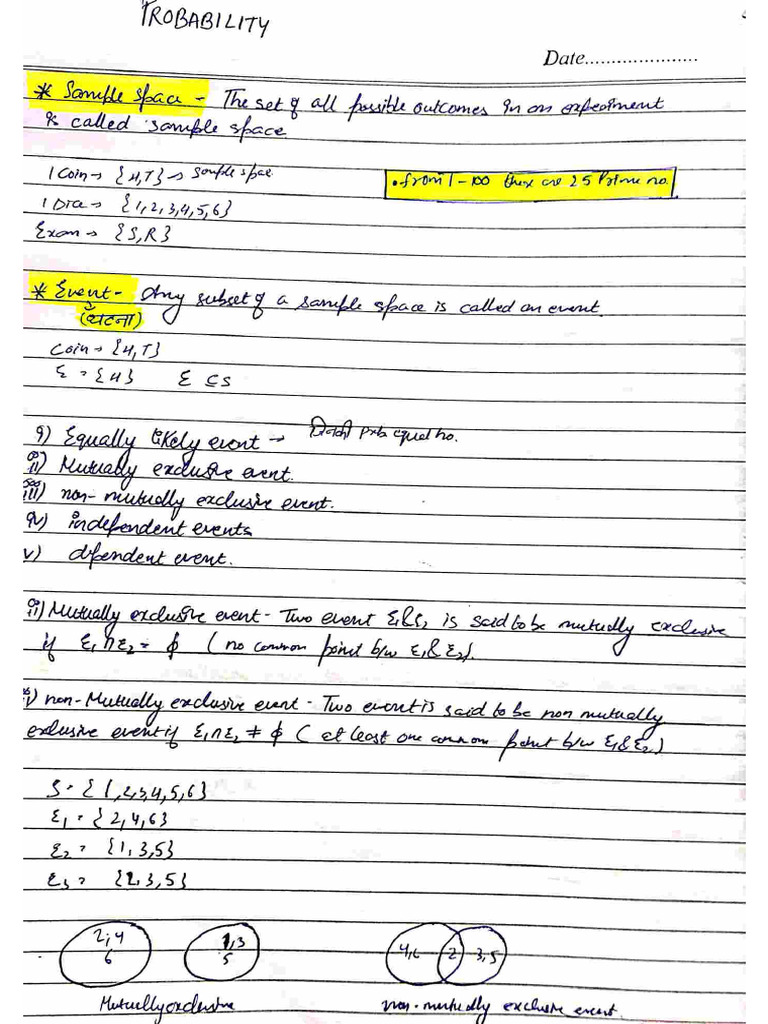 PROBABILITY
Date....................
* Sample space - The set of all possible outcomes in an expeiment
is called sample space
1 Coin → {H,T} → Sample spae
• from 1 - 100 there are 25 Prime no.
1 Dice → {1,2,3,4,5,6}
Exam → {S,R}
* Event - Any subset of a sample space is called an event.
(घटना)
Coin → {H,T}
E = {H} E ⊆ S
i) Equally likely event → जिनकी Prob equal ho.
ii) Mutually exclusive event.
iii) non-mutually exclusive event.
iv) independent events
v) dipendent event.
ii) Mutually exclusive event - Two event E₁ & E₂ is said to be mutually exclusive
if E₁ ∩ E₂ = ϕ ( no common point b/w E₁ & E₂).
non-Mutually exclusive event - Two event is said to be non mutually
exclusive event if E₁ ∩ E₂ ≠ ϕ ( at least one common point b/w E₁ & E₂)
S = {1,2,3,4,5,6}
E₁ = {2,4,6}
E₂ = {1,3,5}
E₃ = {2,3,5}
2,4 1,3 4,6 2 3,5
6 5
Mutually exclusive non-mutually exclusive event.